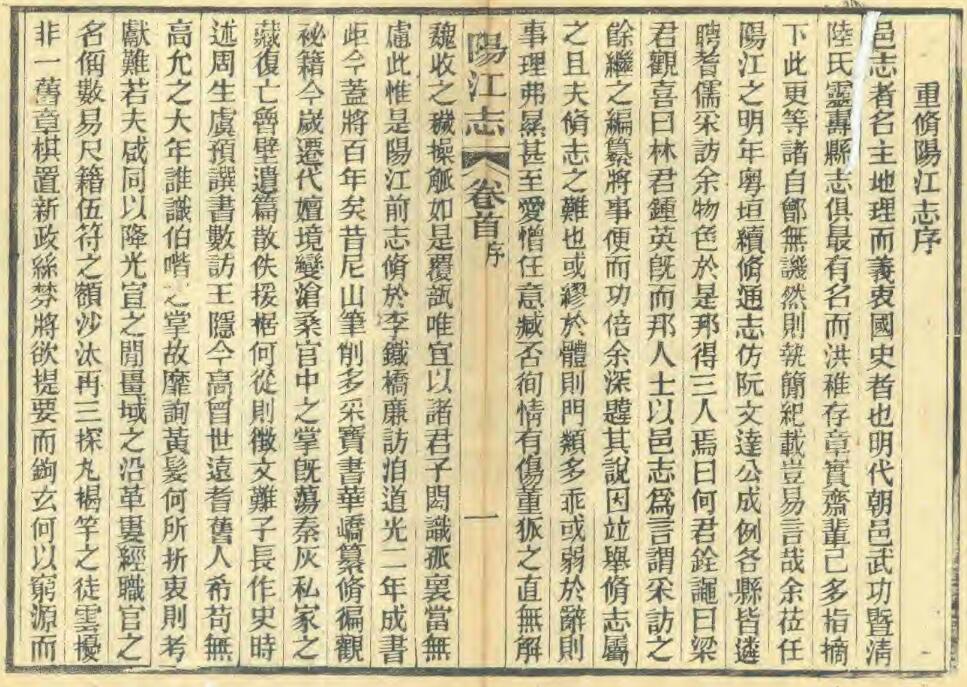 重脩陽江志序
邑志者名主地理而義衷國史者也明代朝邑武功暨淸
陸氏靈壽縣志俱最有名而洪稚存章實齋輩已多指摘
下此更等諸自鄶無譏然則執簡紀載豈易言哉余莅任
陽江之明年粵垣續脩通志仿阮文達公成例各縣皆遴
聘耆儒采訪余物色於是邦得三人焉曰何君銓譝曰梁
君觀喜曰林君鍾英旣而邦人士以邑志爲言謂采訪之
餘繼之編纂將事便而功倍余深韙其說因竝舉脩志屬
之且夫脩志之難也或繆於體則門類多乖或弱於辭則
事理弗㬎甚至愛憎任意臧否徇情有傷董狐之直無解
陽江志 卷首 序 一
魏收之穢操觚如是覆瓿唯宜以諸君子閎識孤褱當無
慮此惟是陽江前志脩於李鐵橋廉訪洎道光二年成書
歫今蓋將百年矣昔尼山筆削多采寶書華嶠纂脩徧觀
祕籍今歲遷代嬗境變滄桑官中之掌旣蕩秦灰私家之
藏復亡魯壁遺篇散佚援椐何從則徵文難子長作史時
述周生虞預譔書數訪王隱今高曾世遠耆舊人希苟無
高允之大年誰識伯喈之掌故靡詢黃髮何所折衷則考
獻難若夫咸同以降光宣之閒畺域之沿革婁經職官之
名偁數易尺籍伍符之額沙汰再三探丸楬竿之徒雲擾
非一舊章棋置新政絲棼將欲提要而鉤玄何以窮源而